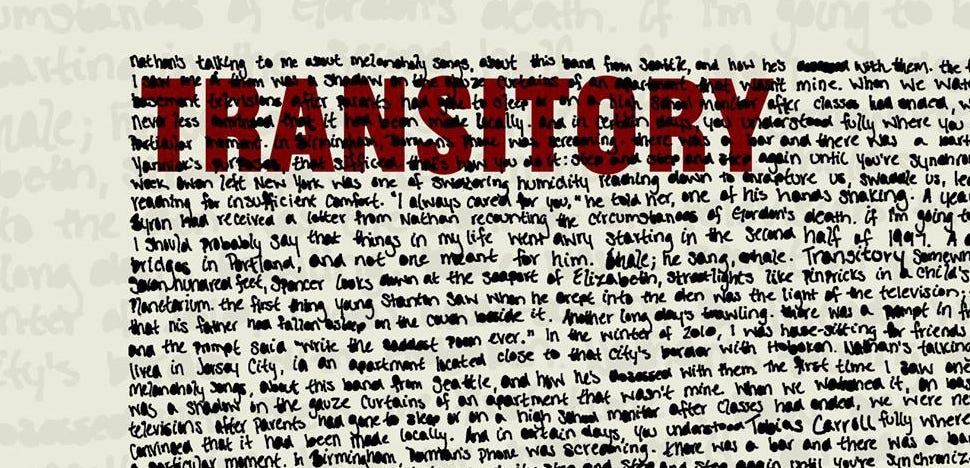 TRANSITORY
Nathan's talking to me about melancholy songs, about this band from Seattle, and how he's obsessed with them. the
I saw one. A Item was a shadow on the gauze curtains of an apartment that wasn't mine. When we wat
basement televisions after parents had gone to sleep or on a high school monitor after classes had ended, w
never less convinced that it had been made locally. And in certain days, you understood fully where you
Particular moment. in Birmingham, Dorman's phone was screaming. there was a bar and there was a bart
purposes, that sufficed. that's how you do it: Step and step and step again until you're synchron
week Owen left New York was one of sweltering humidity reaching down to enrapture us, swaddle us, le
reaching for insufficient comfort. "I always cared for you," he told her, one of his hands shaking. A yea
Byron had received a letter from Nathan recounting the circumstances of Gordon's death. if I'm going t
I should probably say that things in my life went awry starting in the second half of 1997. A
bridges in Portland, and not one meant for him. Inhale; he sang, whale. Transitory Somew
Seven hundred feet, Spencer looks down at the seaport of Elizabeth, streetlights like pinpricks in a child's
Planetarium. the first thing young Stanton saw when he crept into the den was the light of the television;
that his father had fallen asleep on the couch beside it. Another long day's trawling. there was a prompt in f
and the prompt said "write the saddest poem ever." In the winter of 2010, I was house-sitting for friends
lived in Jersey City, in an apartment located close to that city's border with Hoboken. Nathan's talkin
melancholy songs, about this band from Seattle, and how he's obsessed with them the first time I saw one
was a shadow on the gauze curtains of an apartment that wasn't mine when we watched it, on bas
televisions after parents had gone to sleep or on a high school monitor after classes had ended, we were ne
Convinced that it had been made locally. And in certain days, you understood Tobias Carroll fully where
a particular moment. In Birmingham, Dorman's phone was screaming. there was a bar and there was a bar
step and step and step again until you're synchroniz